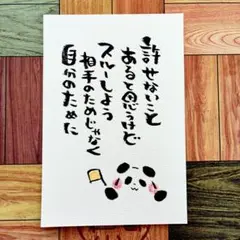 許せないこと
あると思うけど
スルーしよう
相手のためじゃなく
自分のために